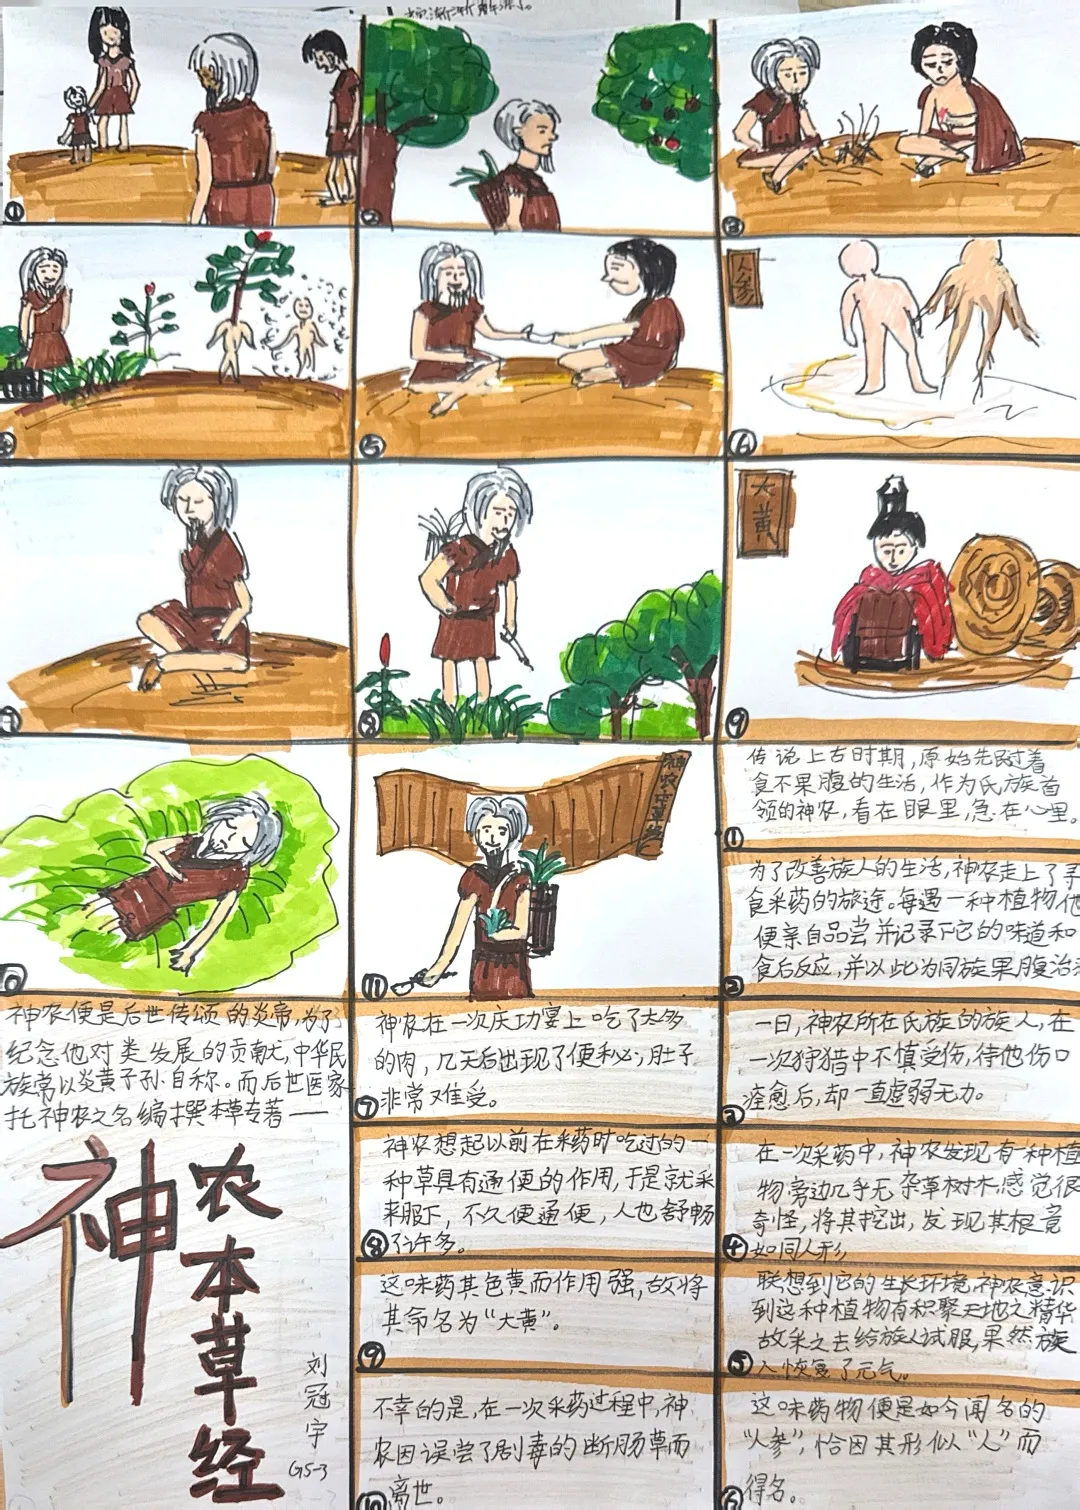 ①
②
③
④
人参
⑤
⑥
大黄
⑦
⑧
⑨
神农本草经
⑪
传说上古时期,原始先民过着
食不果腹的生活,作为氏族首
领的神农,看在眼里,急在心里。
①
为了改善族人的生活,神农走上了寻
食采药的旅途。每遇一种植物他
便亲自品尝并记录下它的味道和
食后反应,并以此为同族果腹治
②
一日,神农所在氏族的族人,在
一次狩猎中不慎受伤,待他伤口
痊愈后,却一直虚弱无力。
③
在一次采药中,神农发现有一种植
物旁边几乎无杂草树木,感觉很
奇怪,将其挖出,发现其根竟
④如同人形
联想到它的生长环境,神农意识
到这种植物有积聚天地之精华
故采之去给族人试服,果然族
⑤人恢复了元气。
这味药物便是如今闻名的
“人参”,恰因其形似“人”而
⑥得名。
神农在一次庆功宴上吃了太多
的肉,几天后出现了便秘,肚子
⑦非常难受。
神农想起以前在采药时吃过的一
种草具有通便的作用,于是就采
来服下,不久便通便,人也舒畅
⑧了许多。
这味药其色黄而作用强,故将
其命名为“大黄”。
⑨
不幸的是,在一次采药过程中,神
农因误尝了剧毒的断肠草而
⑩离世。
神农便是后世传颂的炎帝,为了
纪念他对类发展的贡献,中华民
族常以炎黄子孙自称。而后世医家
托神农之名编撰本草专著——
神农本草经
刘冠宇
G5-3